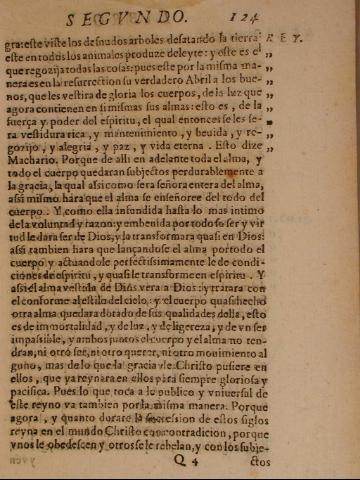 SEGVNDO. 124
gra: este viste los desnudos arboles desatando la tierra: R E Y.
este en todos los animales produze deleyte: y este es el „
que regozija todas las cosas: pues este por la misma ma- „
nera es en la resurrection su verdadero Abril a los bue- „
nos, que les vestira de gloria los cuerpos, de la luz que „
agora contienen en si mismas sus almas: esto es, de la „
fuerça y poder del espiritu, el qual entonces les se- „
ra vestidura rica, y mantenimiento, y beuida, y re- „
gozijo, y alegria, y paz, y vida eterna. Esto dize „
Machario. Porque de alli en adelante toda el alma, y
todo el cuerpo quedaran subjectos perdurablemente a
la gracia, la qual assi como sera señora entera del alma,
assi mismo hara que el alma se enseñoree del todo del
cuerpo. Y como ella infundida hasta lo mas intimo
de la voluntad y razon: y embeuida por todo su ser y vir
tud le dara ser de Dios, y la transformara quasi en Dios:
assi tambien hara que lançandose el alma por todo el
cuerpo y actuandole perfectissimamente le de condi-
ciones de espiritu, y quasi le transforme en espiritu. Y
assi el alma vestida de Dios vera a Dios: y tratara con
el conforme al estilo del cielo: y el cuerpo quasi hecho
otra alma quedara dotado de sus qualidades della, esto
es de immortalidad, y de luz, y de ligereza, y de vn ser
impassible, y ambos juntos el cuerpo y el alma no ten-
dran, ni otro ser, ni otro querer, ni otro mouimiento al
guno, mas de lo que la gracia de Christo pusiere en
ellos, que ya reynara en ellos para siempre gloriosa y
pacifica. Pues lo que toca a lo publico y vniuersal de
este reyno va tambien por la misma manera. Porque
agora, y quanto durare la succession de estos siglos
reyna en el mundo Christo con contradicion, porque
vnos le obedescen y otros se le rebelan, y con los subje-
Q 4 ctos